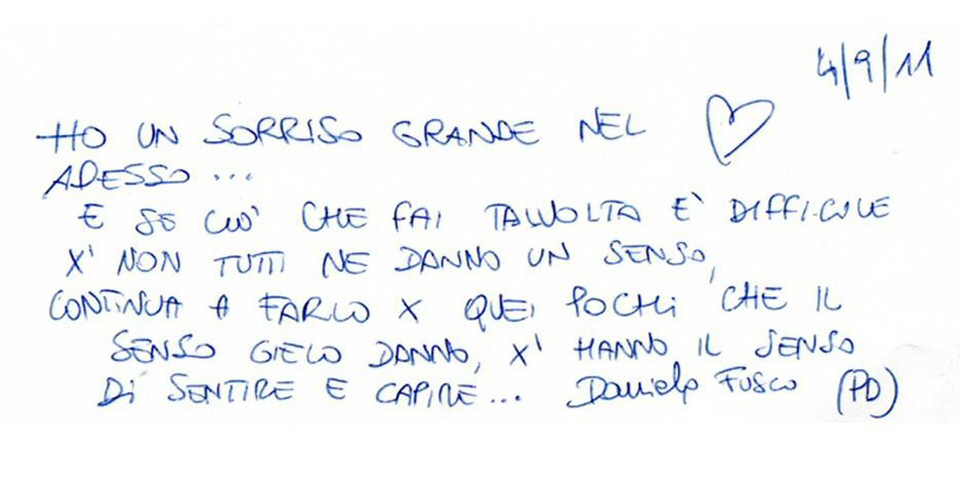 4/9/11
HO UN SORRISO GRANDE NEL
ADESSO...
E SE CIO' CHE FAI TALVOLTA E' DIFFICILE
X' NON TUTTI NE DANNO UN SENSO,
CONTINUA A FARLO X QUEI POCHI CHE IL
SENSO GIELO DANNO, X' HANNO IL SENSO
DI SENTIRE E CAPIRE... Daniela FUSCO (PD)